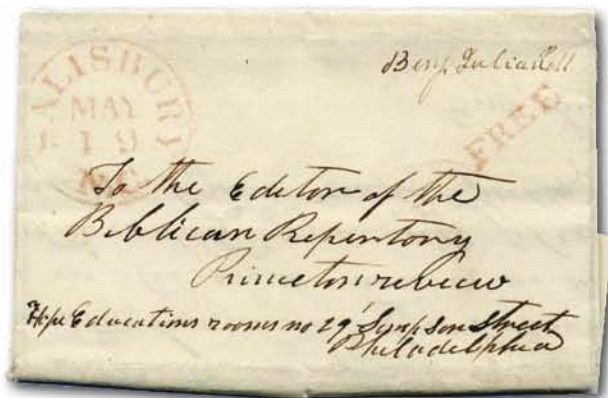 SALISBURY
MAY
19
N.C.
Benj. Julian
FREE
To the Editor of the
Biblican Repertory
Princeton review
Educations rooms no 29 Simpson Street
Philadelphia